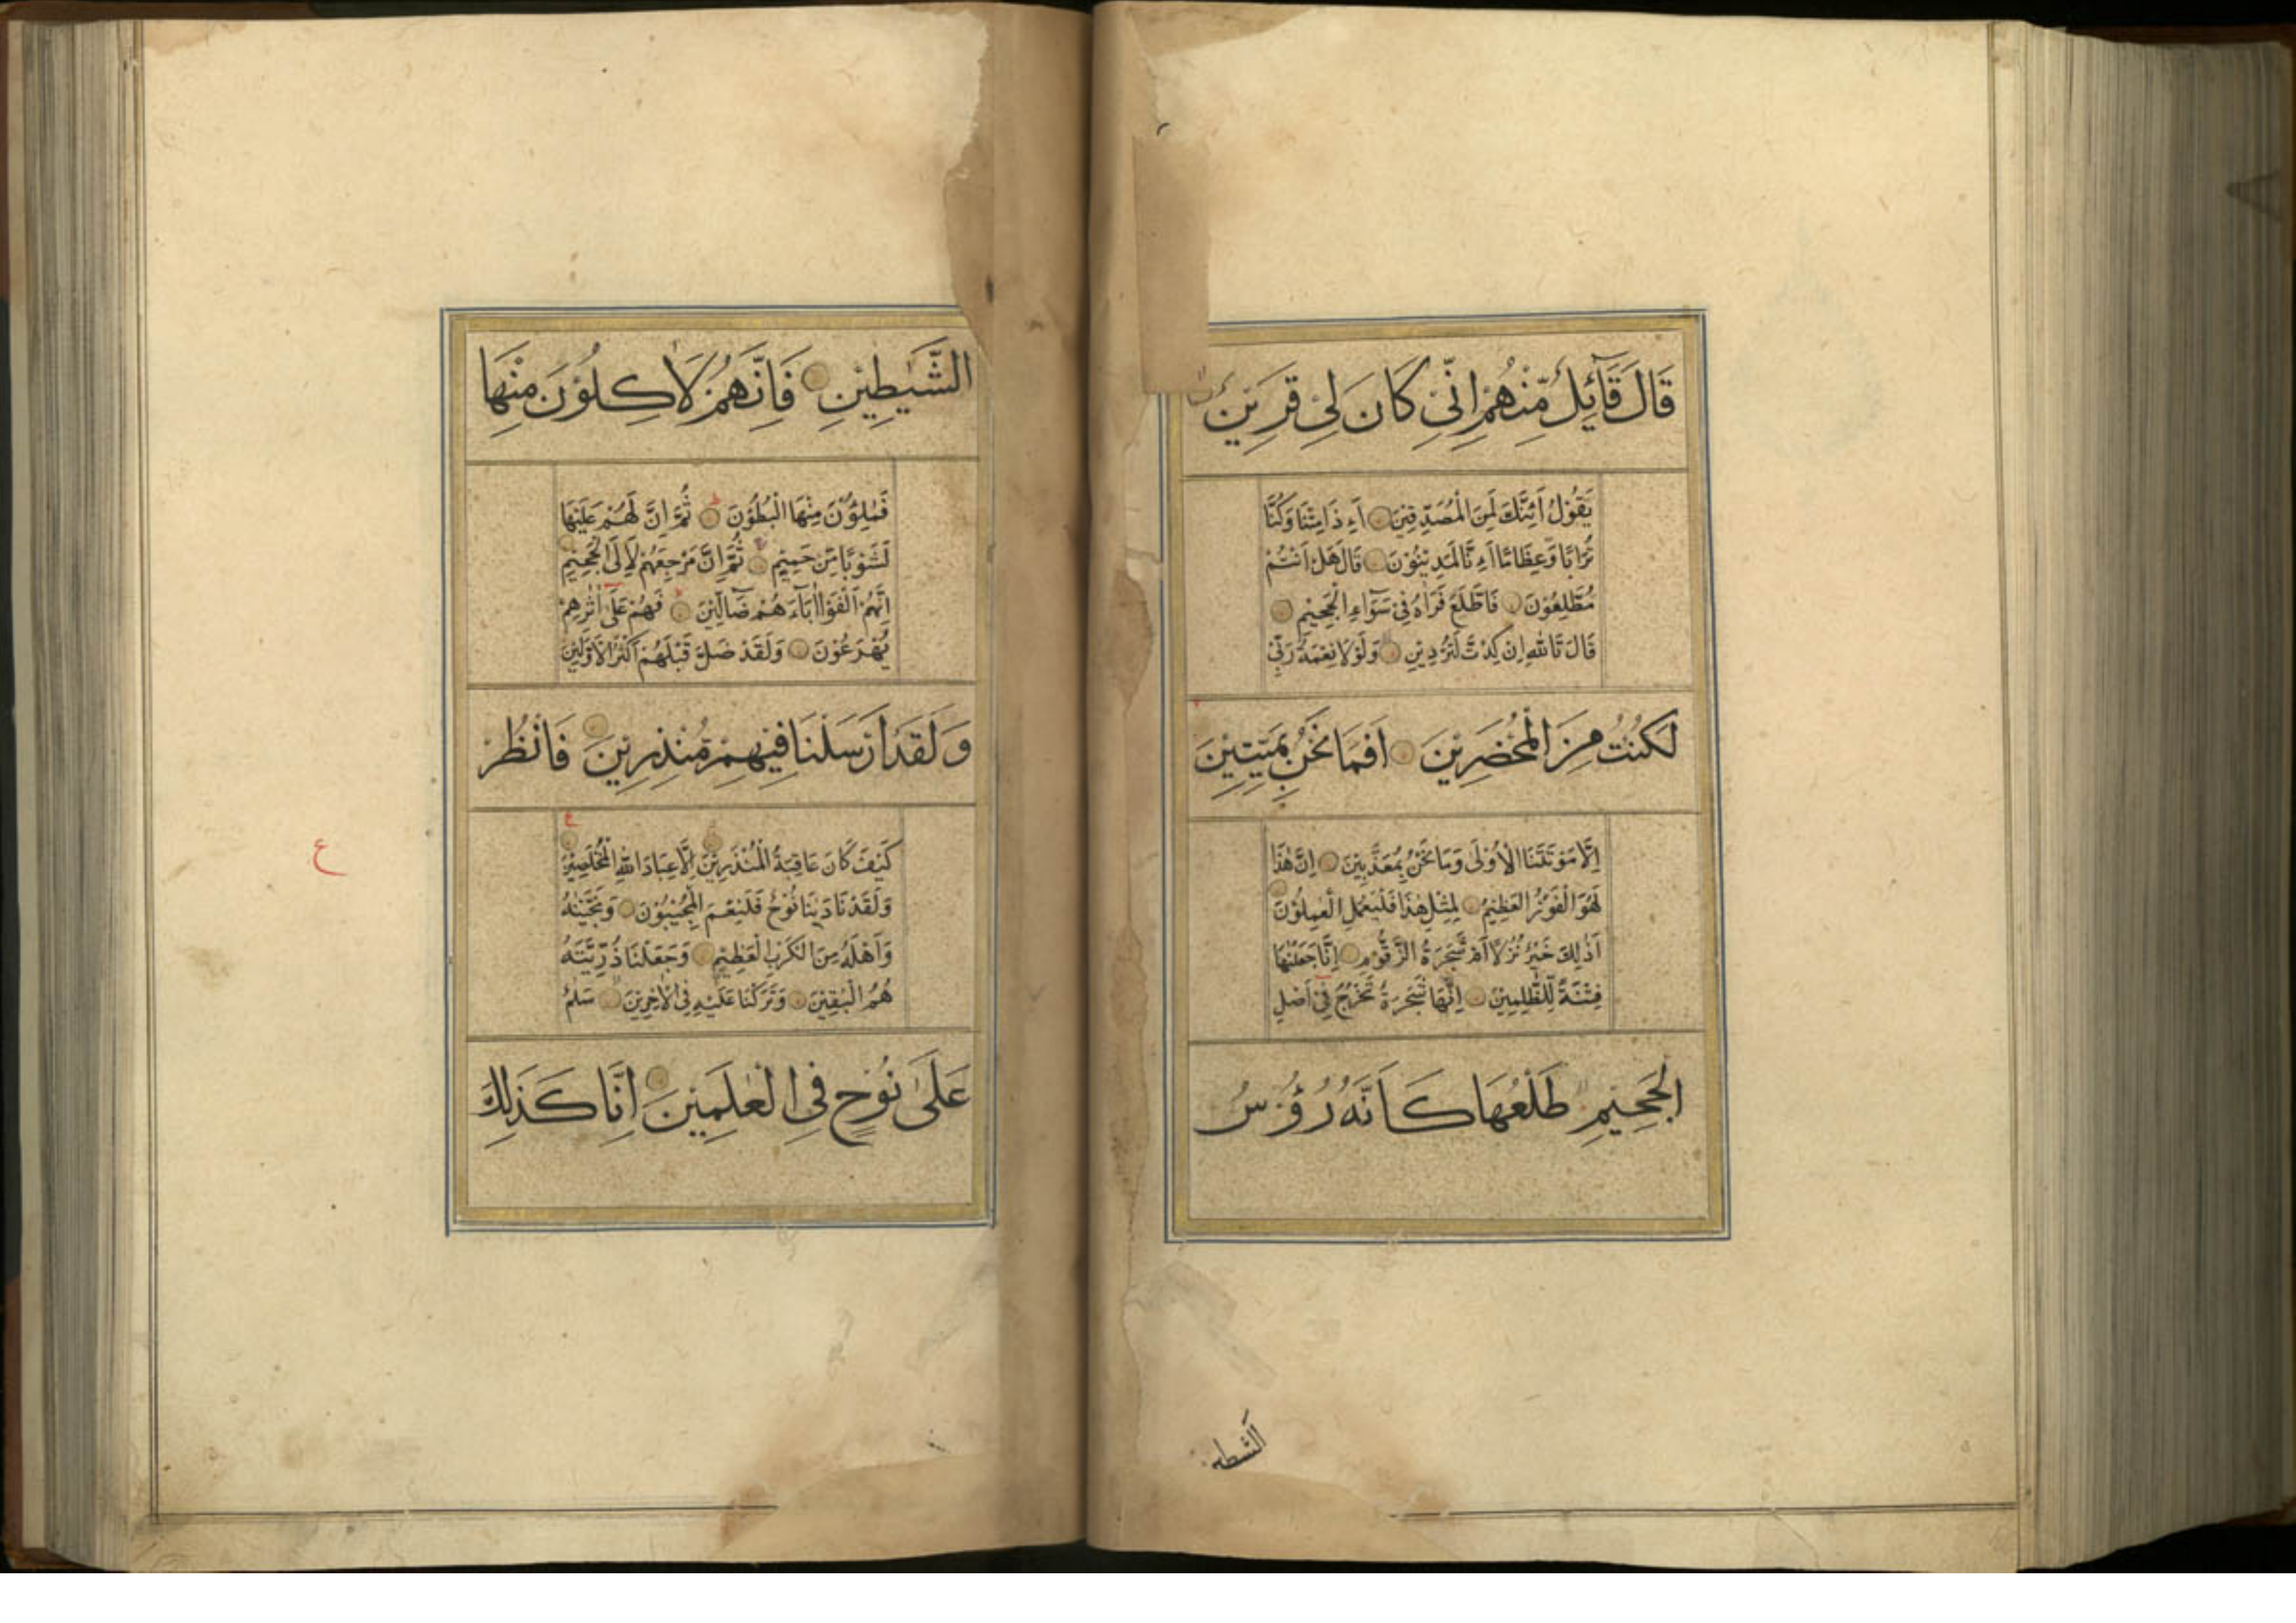 قَالَ قَآئِلٌ مِّنْهُمْ اِنِّىْ كَانَ لِىْ قَرِيْنٌ
يَقُوْلُ اَئِنَّكَ لَمِنَ الْمُصَدِّقِيْنَ اَءِذَا مِتْنَا وَكُنَّا
تُرَابًا وَّعِظَامًا اَءِنَّا لَمَدِيْنُوْنَ قَالَ هَلْ اَنْتُمْ
مُطَّلِعُوْنَ فَاطَّلَعَ فَرَاٰهُ فِىْ سَوَآءِ الْجَحِيْمِ
قَالَ تَاللهِ اِنْ كِدْتَّ لَتُرْدِيْنِ وَلَوْلَا نِعْمَةُ رَبِّىْ
لَكُنْتُ مِنَ الْمُحْضَرِيْنَ اَفَمَا نَحْنُ بِمَيِّتِيْنَ
اِلَّا مَوْتَتَنَا الْاُوْلٰى وَمَا نَحْنُ بِمُعَذَّبِيْنَ اِنَّ هٰذَا
لَهُوَ الْفَوْزُ الْعَظِيْمُ لِمِثْلِ هٰذَا فَلْيَعْمَلِ الْعٰمِلُوْنَ
اَذٰلِكَ خَيْرٌ نُّزُلًا اَمْ شَجَرَةُ الزَّقُّوْمِ اِنَّا جَعَلْنٰهَا
فِتْنَةً لِّلظّٰلِمِيْنَ اِنَّهَا شَجَرَةٌ تَخْرُجُ فِىْ اَصْلِ
الْجَحِيْمِ طَلْعُهَا كَاَنَّهٗ رُؤُسُ
الشيطين
الشَّيٰطِيْنِ فَاِنَّهُمْ لَاٰكِلُوْنَ مِنْهَا
فَمٰلِؤُنَ مِنْهَا الْبُطُوْنَ ثُمَّ اِنَّ لَهُمْ عَلَيْهَا
لَشَوْبًا مِّنْ حَمِيْمٍ ثُمَّ اِنَّ مَرْجِعَهُمْ لَاِلَى الْجَحِيْمِ
اِنَّهُمْ اَلْفَوْا اٰبَآءَهُمْ ضَآلِّيْنَ فَهُمْ عَلٰٓى اٰثٰرِهِمْ
يُهْرَعُوْنَ وَلَقَدْ ضَلَّ قَبْلَهُمْ اَكْثَرُ الْاَوَّلِيْنَ
وَلَقَدْ اَرْسَلْنَا فِيْهِمْ مُّنْذِرِيْنَ فَانْظُرْ
كَيْفَ كَانَ عَاقِبَةُ الْمُنْذَرِيْنَ اِلَّا عِبَادَ اللهِ الْمُخْلَصِيْنَ
ع
وَلَقَدْ نَادٰىنَا نُوْحٌ فَلَنِعْمَ الْمُجِيْبُوْنَ وَنَجَّيْنٰهُ
وَاَهْلَهٗ مِنَ الْكَرْبِ الْعَظِيْمِ وَجَعَلْنَا ذُرِّيَّتَهٗ
هُمُ الْبٰقِيْنَ وَتَرَكْنَا عَلَيْهِ فِى الْاٰخِرِيْنَ سَلٰمٌ
عَلٰى نُوْحٍ فِى الْعٰلَمِيْنَ اِنَّا كَذٰلِكَ